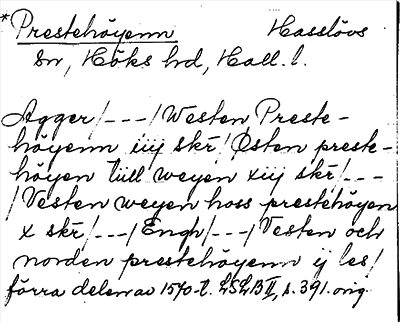 *Prestehöyenn Hasslövs
sn, Höks hd, Hall. l.
Agger/---/Westen Preste-
höyenn iiij skr/Østen preste-
höyen till weyen xiij skr/---
/Vesten weyen hoss prestehöyen
x skr/---/Engh/---/Vesten och
norden prestehöyenn ij les/
förra delen av 1570-t. LSLB II, s. 391. orig.